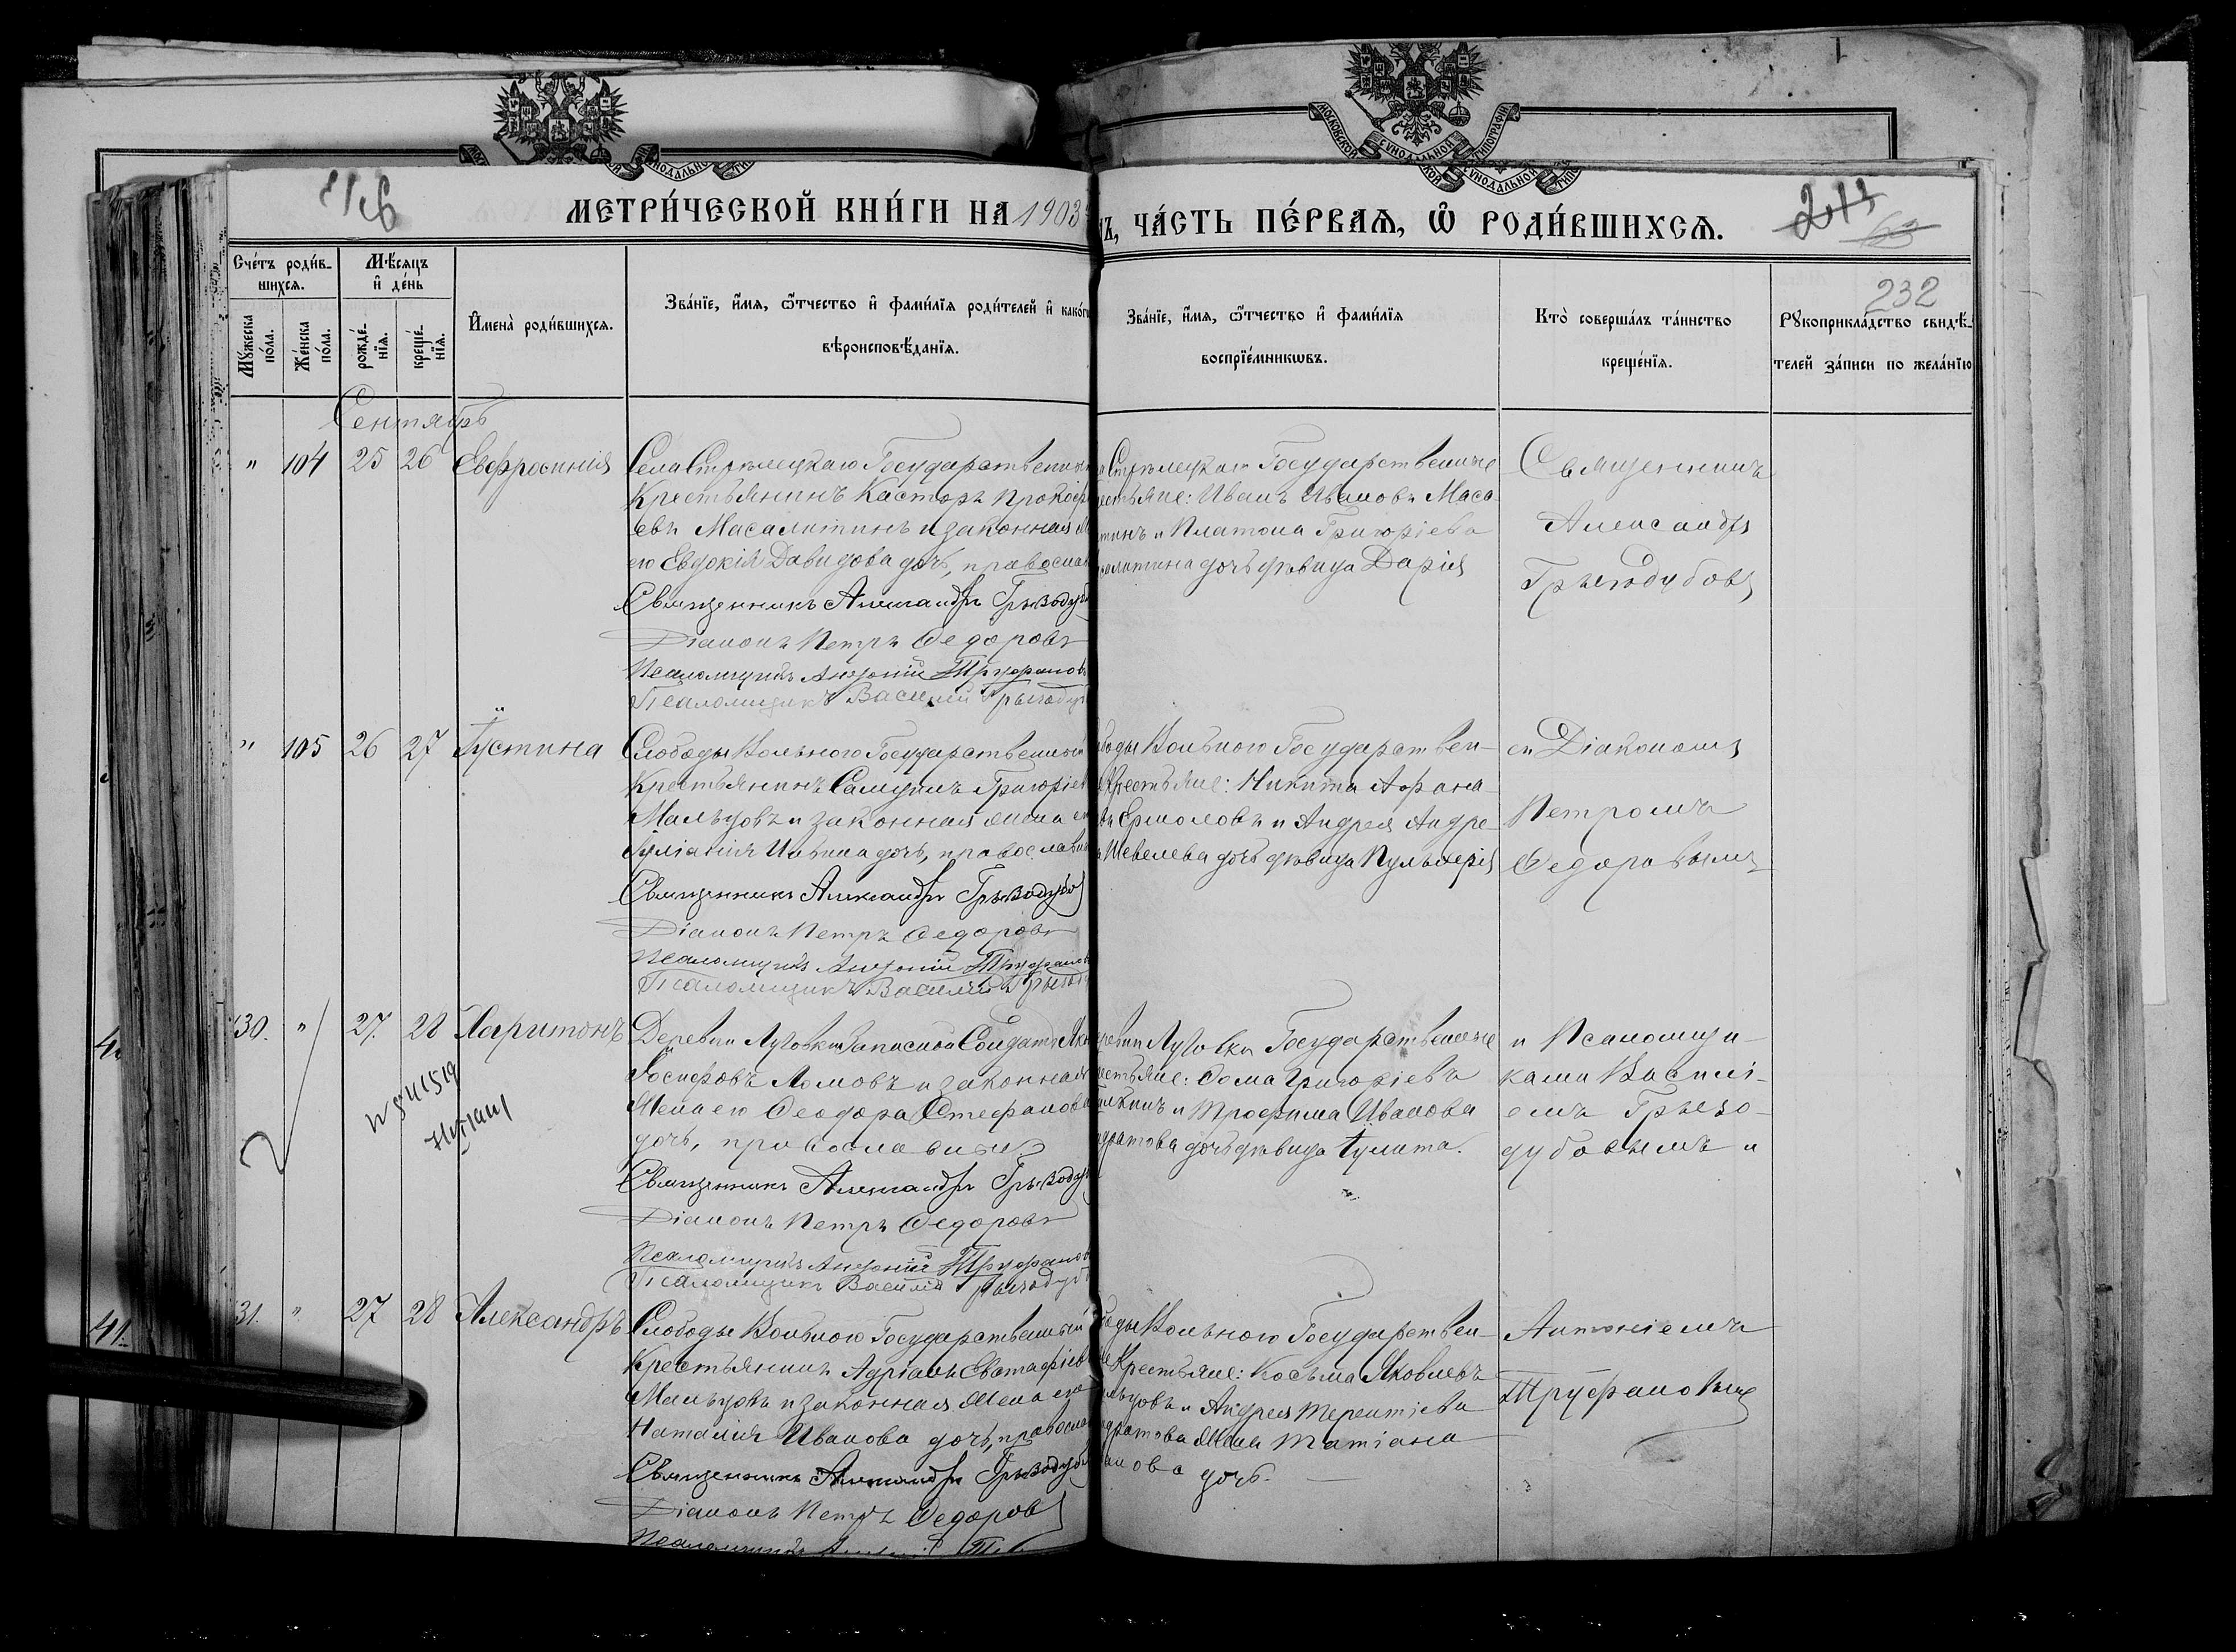 МОСКОВСКОЙ СѴНОДАЛЬНОЙ ТИПОГРАФІИ
МЕТРИ́ЧЕСКОЙ КНИ́ГИ НА 1903
Ъ, ЧА́СТЬ ПЕ́РВАѦ, Ѿ РОДИ́ВШИХСѦ.
232
Сче́тъ роди́в-
шихся.
Мѣ́сяцъ
и҆ де́нь
Му́жеска по́ла.
Же́нска по́ла.
рожде́-
нїя.
креще́-
нїя.
И҆мена̀ роди́вшихся.
Зва́нїе, и҆́мя, ѻ҆́тчество и҆ фами́лїя роди́телей и҆ како́г
вѣроисповѣ́данїя.
Зва́нїе, и҆́мя, ѻ҆́тчество и҆ фами́лїя
воспрїе́мникѡвъ.
Кто̀ соверша́лъ та́инство
креще́нїя.
Рꙋкоприкла́дство свидѣ́-
телей за́писи по жела́нїю
Сентябрь
" 104 25 26 Евфросинія
Села Стрѣлецкаго Государственный
Крестьянинъ Касторъ Прокофі
евъ Масалитинъ и законная
его Евдокія Давидова дочь, правосла
Священникъ Александръ Грызодуб
Діаконъ Петръ Ѳедоровъ
Псаломщикъ Антоній Труфановъ
Псаломщикъ Василій Грызодуб
Стрѣлецкаго Государственные
естьяне: Иванъ Ивановъ Маса-
тинъ и Платона Григоріева
салитина дочь дѣвица Дарія
Священникъ
Александръ
Грызодубовъ
" 105 26 27 Іустина
Слободы Вольного Государственный
Крестьянинъ Самуилъ Григоріев
Мальцовъ и законная жена его
Іуліанія Ильина дочь, православны
Священникъ Александръ Грызодубов
Діаконъ Петръ Ѳедоровъ
Псаломщикъ Антоній Труфанов
Псаломщикъ Василій Грызод
боды Вольного Государствен-
Крестьяне: Никита Афана-
въ Ермоловъ и Андрея Андре-
Шевелева дочь дѣвица Пульхерія
съ Діакономъ
Петромъ
Ѳедоровымъ
130. " 27. 28 Харитонъ
Деревни Луговки Запасной Солдатъ Як
Іосифовъ Ломовъ и законная
жена его Ѳеодора Стефанова
дочь, православны
Священникъ Александръ Грызодуб
Діаконъ Петръ Ѳедоровъ
Псаломщикъ Антоній Труфанов
Псаломщикъ Василій Грызодуб
ревни Луговки Государственные
естьяне: Ѳома Григоріевъ
и Трофима Иванова
дратова дочь дѣвица Іулита.
и Псаломщи-
ками Василі-
емъ Грызо-
дубовымъ и
131. " 27 28 Александръ
Слободы Вольного Государственный
Крестьянинъ Адріанъ Евстафіев
Мальцовъ и законная жена его
Наталія Иванова дочь, правосла
Священникъ Александръ Грызодуб
Діаконъ Петръ Ѳедоровъ
Псаломщикъ
боды Вольного Государствен-
Крестьяне: Косьма Яковлевъ
льцовъ и Андрея Терентіева
дратова жена Татіана
анова дочь.
Антоніемъ
Труфановымъ
41.